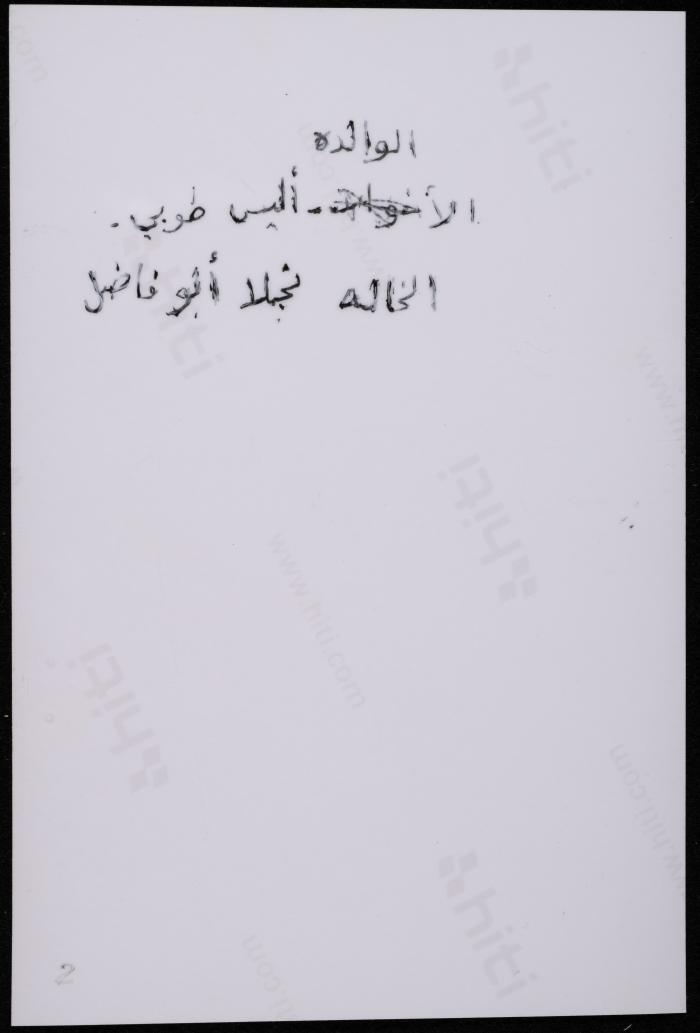 الوالده
الأخوات - أليس طوبي .
الخاله نجلا أبو فاضل
hiti
www.hiti.com
2